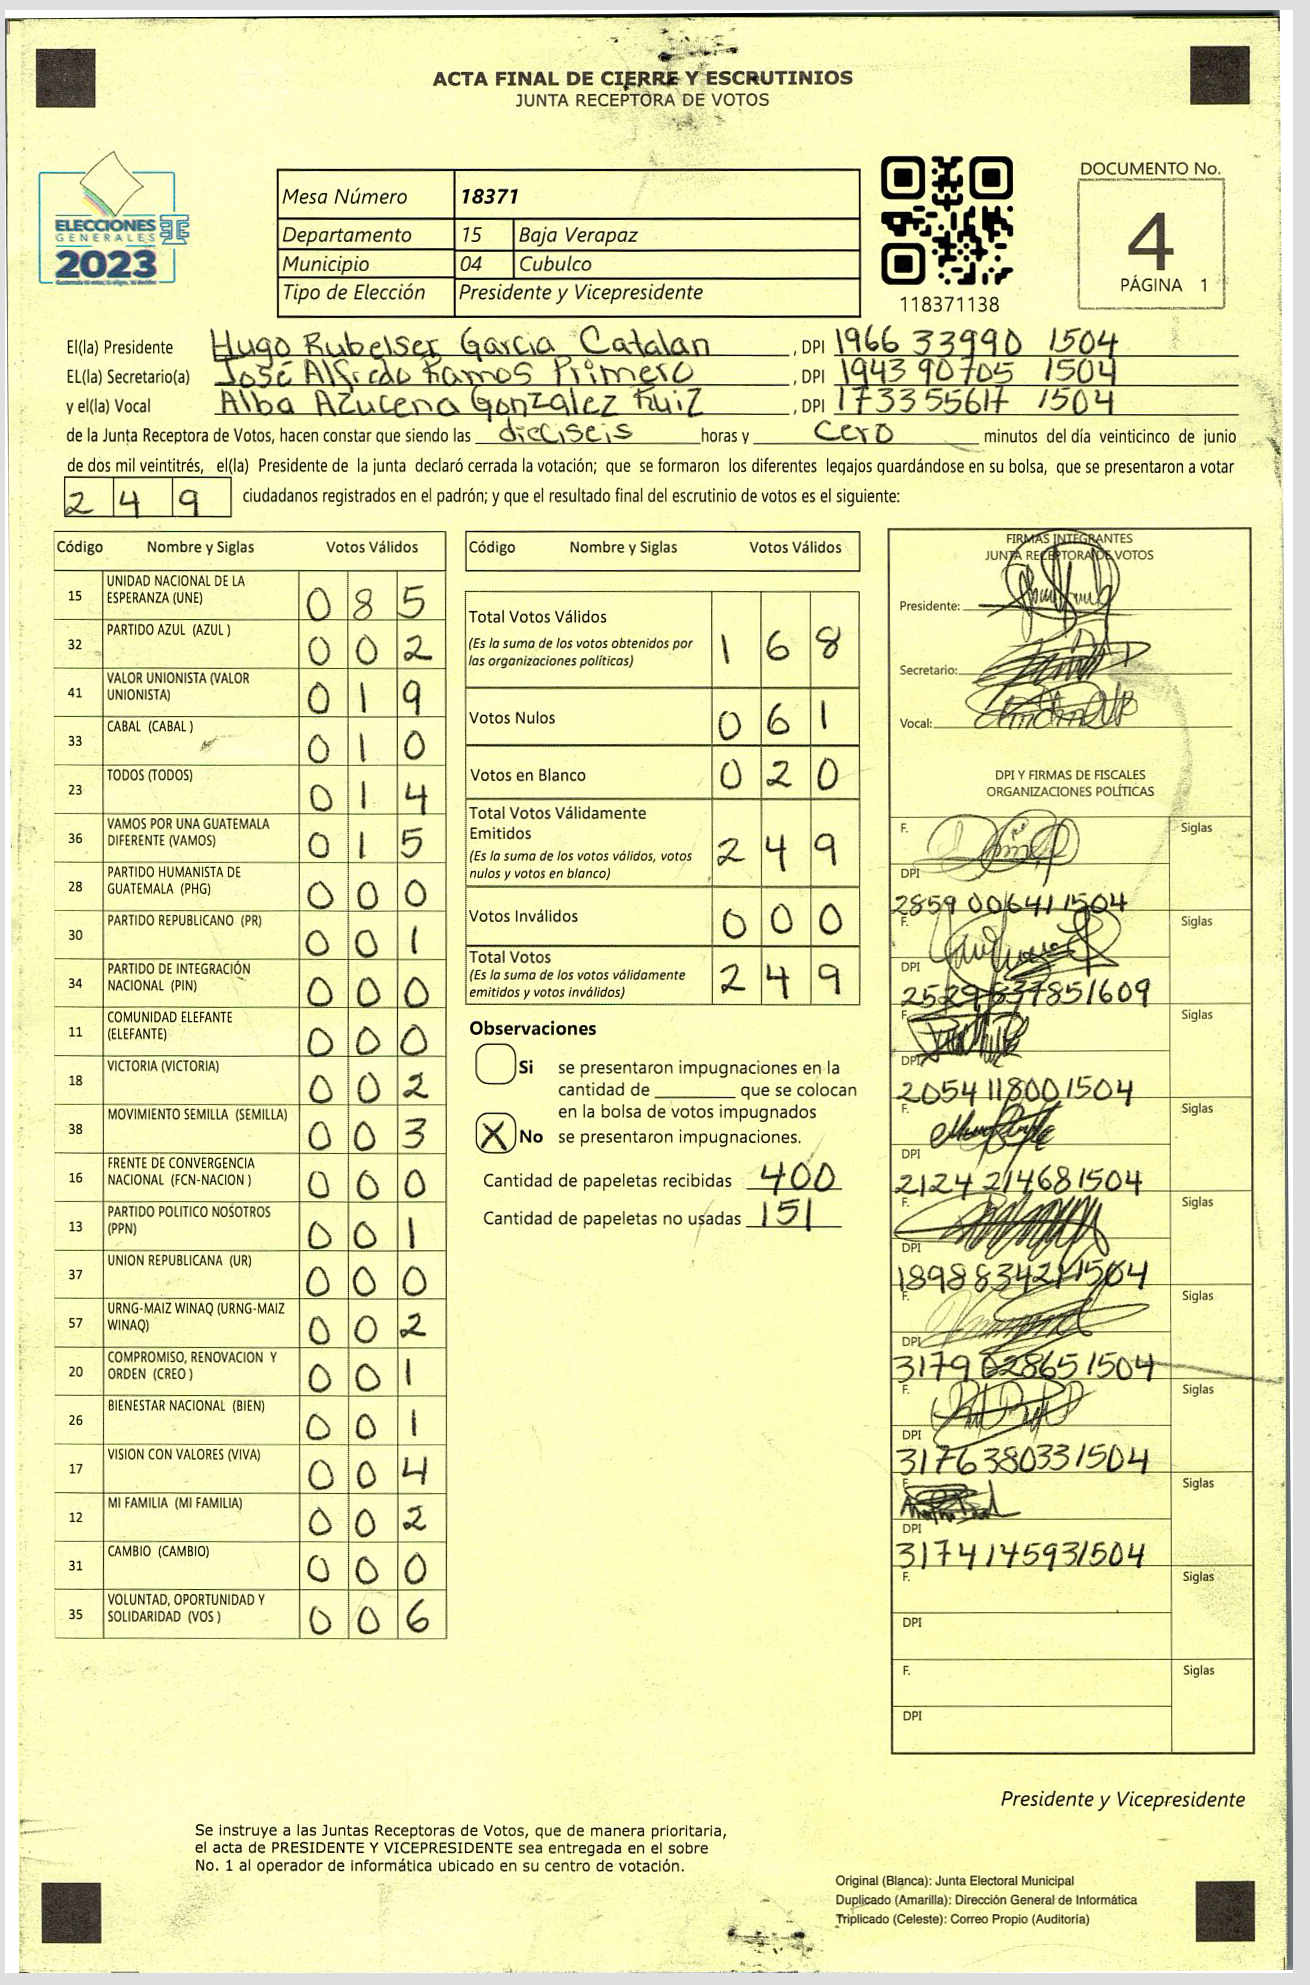 ACTA FINAL DE CIERRE Y ESCRUTINIOS
JUNTA RECEPTORA DE VOTOS
ELECCIONES
GENERALES
2023
Mesa Número 18371
Departamento 15 Baja Verapaz
Municipio 04 Cubulco
Tipo de Elección Presidente y Vicepresidente
118371138
DOCUMENTO No.
4
PÁGINA 1
El(la) Presidente Hugo Rubelser Garcia Catalan , DPI 1966 33990 1504
EL(la) Secretario(a) José Alfredo Ramos Primero , DPI 1943 90705 1504
y el(la) Vocal Alba Azucena Gonzalez Ruiz , DPI 1733 55617 1504
de la Junta Receptora de Votos, hacen constar que siendo las dieciseis horas y cero minutos del día veinticinco de junio
de dos mil veintitrés, el(la) Presidente de la junta declaró cerrada la votación; que se formaron los diferentes legajos guardándose en su bolsa, que se presentaron a votar
2 4 9 ciudadanos registrados en el padrón; y que el resultado final del escrutinio de votos es el siguiente:
Código Nombre y Siglas Votos Válidos
15 UNIDAD NACIONAL DE LA
ESPERANZA (UNE) 0 8 5
32 PARTIDO AZUL (AZUL ) 0 0 2
41 VALOR UNIONISTA (VALOR
UNIONISTA) 0 1 9
33 CABAL (CABAL ) 0 1 0
23 TODOS (TODOS) 0 1 4
36 VAMOS POR UNA GUATEMALA
DIFERENTE (VAMOS) 0 1 5
28 PARTIDO HUMANISTA DE
GUATEMALA (PHG) 0 0 0
30 PARTIDO REPUBLICANO (PR) 0 0 1
34 PARTIDO DE INTEGRACIÓN
NACIONAL (PIN) 0 0 0
11 COMUNIDAD ELEFANTE
(ELEFANTE) 0 0 0
18 VICTORIA (VICTORIA) 0 0 2
38 MOVIMIENTO SEMILLA (SEMILLA) 0 0 3
16 FRENTE DE CONVERGENCIA
NACIONAL (FCN-NACION ) 0 0 0
13 PARTIDO POLITICO NOSOTROS
(PPN) 0 0 1
37 UNION REPUBLICANA (UR) 0 0 0
57 URNG-MAIZ WINAQ (URNG-MAIZ
WINAQ) 0 0 2
20 COMPROMISO, RENOVACION Y
ORDEN (CREO ) 0 0 1
26 BIENESTAR NACIONAL (BIEN) 0 0 1
17 VISION CON VALORES (VIVA) 0 0 4
12 MI FAMILIA (MI FAMILIA) 0 0 2
31 CAMBIO (CAMBIO) 0 0 0
35 VOLUNTAD, OPORTUNIDAD Y
SOLIDARIDAD (VOS ) 0 0 6
Código Nombre y Siglas Votos Válidos
Total Votos Válidos
(Es la suma de los votos obtenidos por
las organizaciones políticas) 1 6 8
Votos Nulos 0 6 1
Votos en Blanco 0 2 0
Total Votos Válidamente
Emitidos
(Es la suma de los votos válidos, votos
nulos y votos en blanco) 2 4 9
Votos Inválidos 0 0 0
Total Votos
(Es la suma de los votos válidamente
emitidos y votos inválidos) 2 4 9
Observaciones
Si se presentaron impugnaciones en la
cantidad de ________ que se colocan
en la bolsa de votos impugnados
X No se presentaron impugnaciones.
Cantidad de papeletas recibidas 400
Cantidad de papeletas no usadas 151
FIRMAS INTEGRANTES
JUNTA RECEPTORA DE VOTOS
Presidente:
Secretario:
Vocal:
DPI Y FIRMAS DE FISCALES
ORGANIZACIONES POLÍTICAS
F. Siglas
DPI
2859 00641 1504
F. Siglas
DPI
F. Siglas
DPI
2054 11800 1504
F. Siglas
DPI
2124 21468 1504
F. Siglas
DPI
F. Siglas
DPI
3179 02865 1504
F. Siglas
DPI
3176 38033 1504
F. Siglas
DPI
3174 14593 1504
F. Siglas
DPI
F. Siglas
DPI
Presidente y Vicepresidente
Se instruye a las Juntas Receptoras de Votos, que de manera prioritaria,
el acta de PRESIDENTE Y VICEPRESIDENTE sea entregada en el sobre
No. 1 al operador de informática ubicado en su centro de votación.
Original (Blanca): Junta Electoral Municipal
Duplicado (Amarilla): Dirección General de Informática
Triplicado (Celeste): Correo Propio (Auditoría)